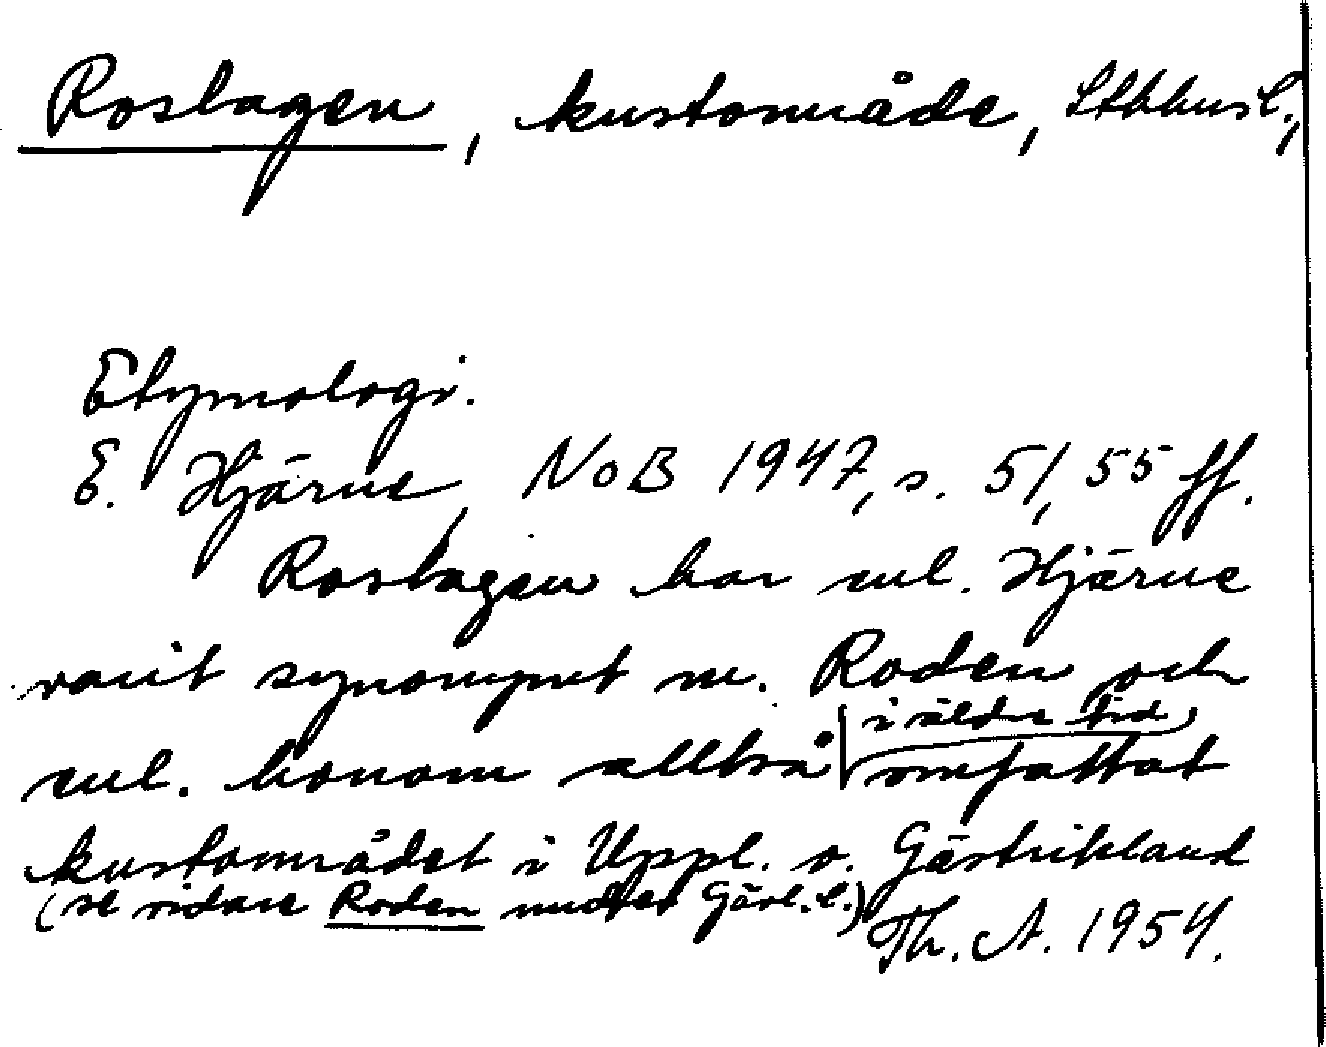 Roslagen, kustområde, Sthlms l.,
Etymologi.
E. Hjärne, NoB 1947, s. 51, 55 ff.
Roslagen har enl. Hjärne
varit synonymt m. Roden och
i äldre tid
enl. honom alltså omfattat
kustområdet i Uppl. o. Gästrikland
(se vidare Roden under Gävl. l.)
Th. A. 1954.